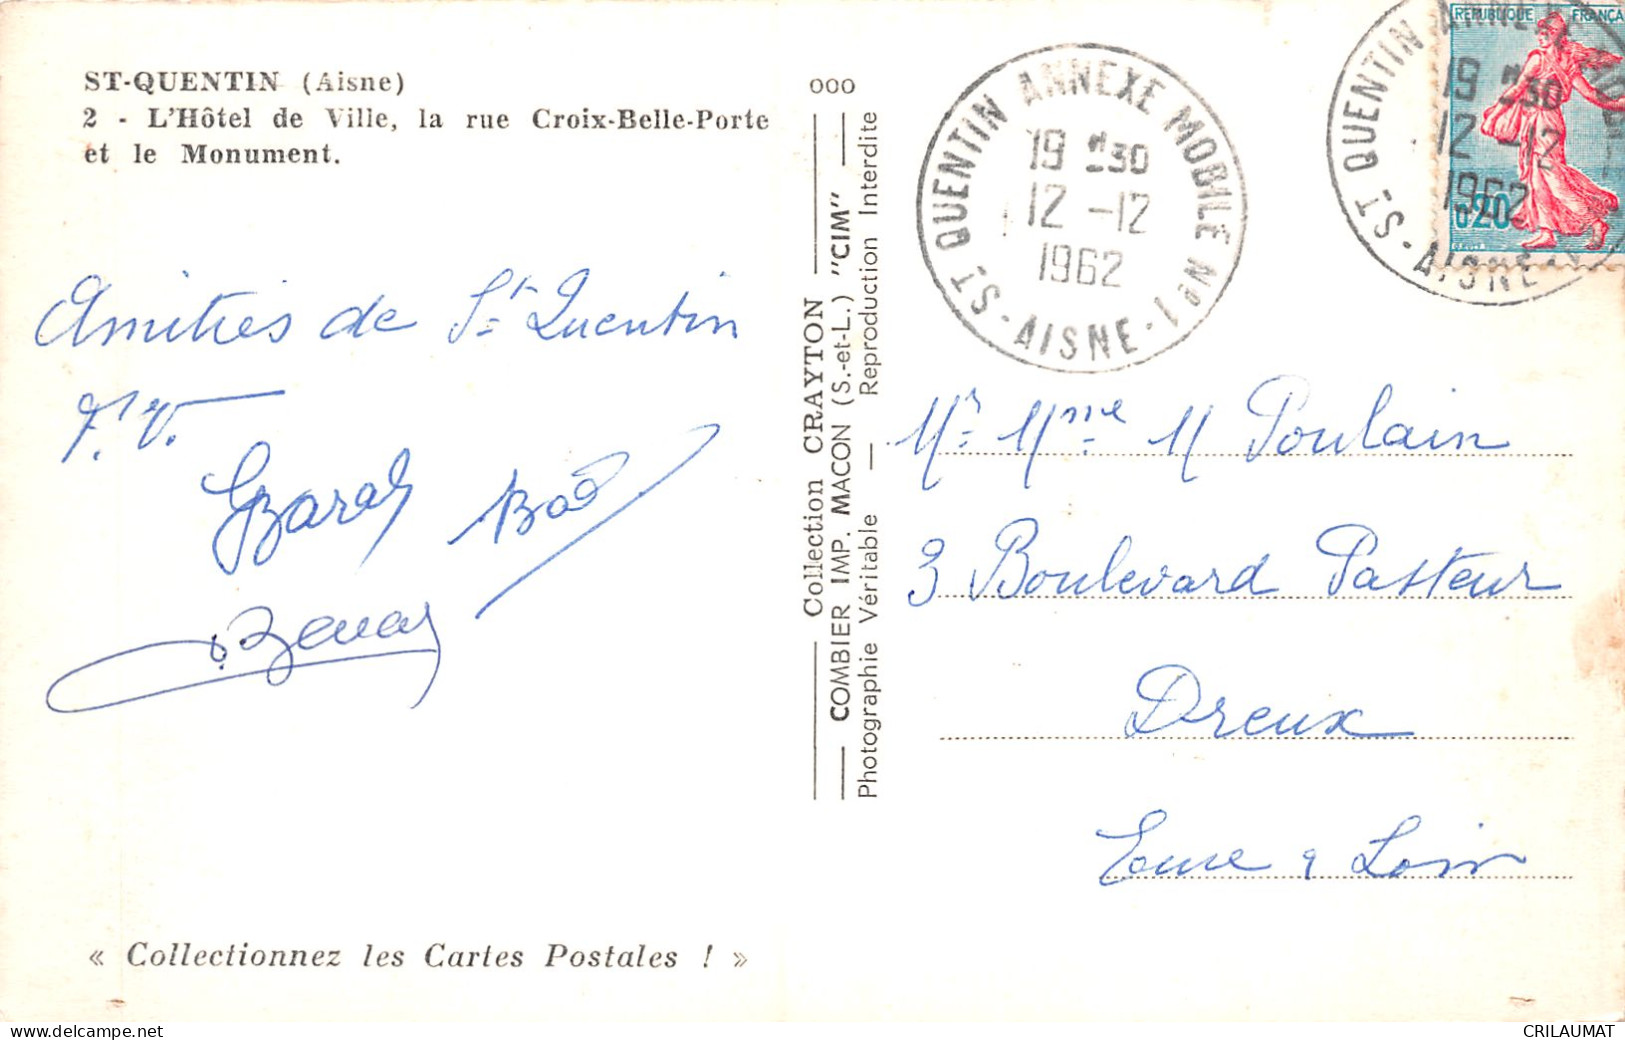 ST-QUENTIN (Aisne)
2 - L'Hôtel de Ville, la rue Croix-Belle-Porte
et le Monument.
Amitiés de St Quentin
« Collectionnez les Cartes Postales ! »
000
Collection CRAYTON
COMBIER IMP. MACON (S.-et-L.) "CIM"
Photographie Véritable — Reproduction Interdite
ST QUENTIN ANNEXE MOBILE N° 1
19 H 30
12 -12
1962
- AISNE -
ST QUENTIN ANNEXE MOBILE
19 H 30
12 -12
1962
- AISNE -
REPUBLIQUE FRANÇA
0,20
Mr Mme M Poulain
3 Boulevard Pasteur
Dreux
Eure & Loir
www.delcampe.net
CRILAUMAT